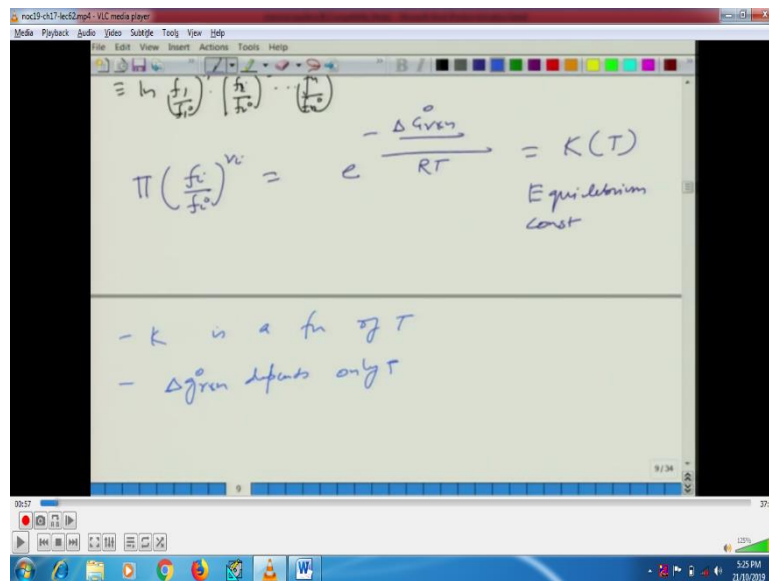 noc19-ch17-lec62.mp4 - VLC media player
Media Playback Audio Video Subtitle Tools View Help
File Edit View Insert Actions Tools Help
≡ ln (f₁/f₁°) · (f₂/f₂°) ⋯
Π (fᵢ/fᵢ°)^νᵢ = e^(-Δg°rxn/RT) = K(T)
Equilibrium
const
- K is a fn of T
- Δg°rxn depends only T
9/34
9
00:57
37:
125%
5:25 PM
21/10/2019